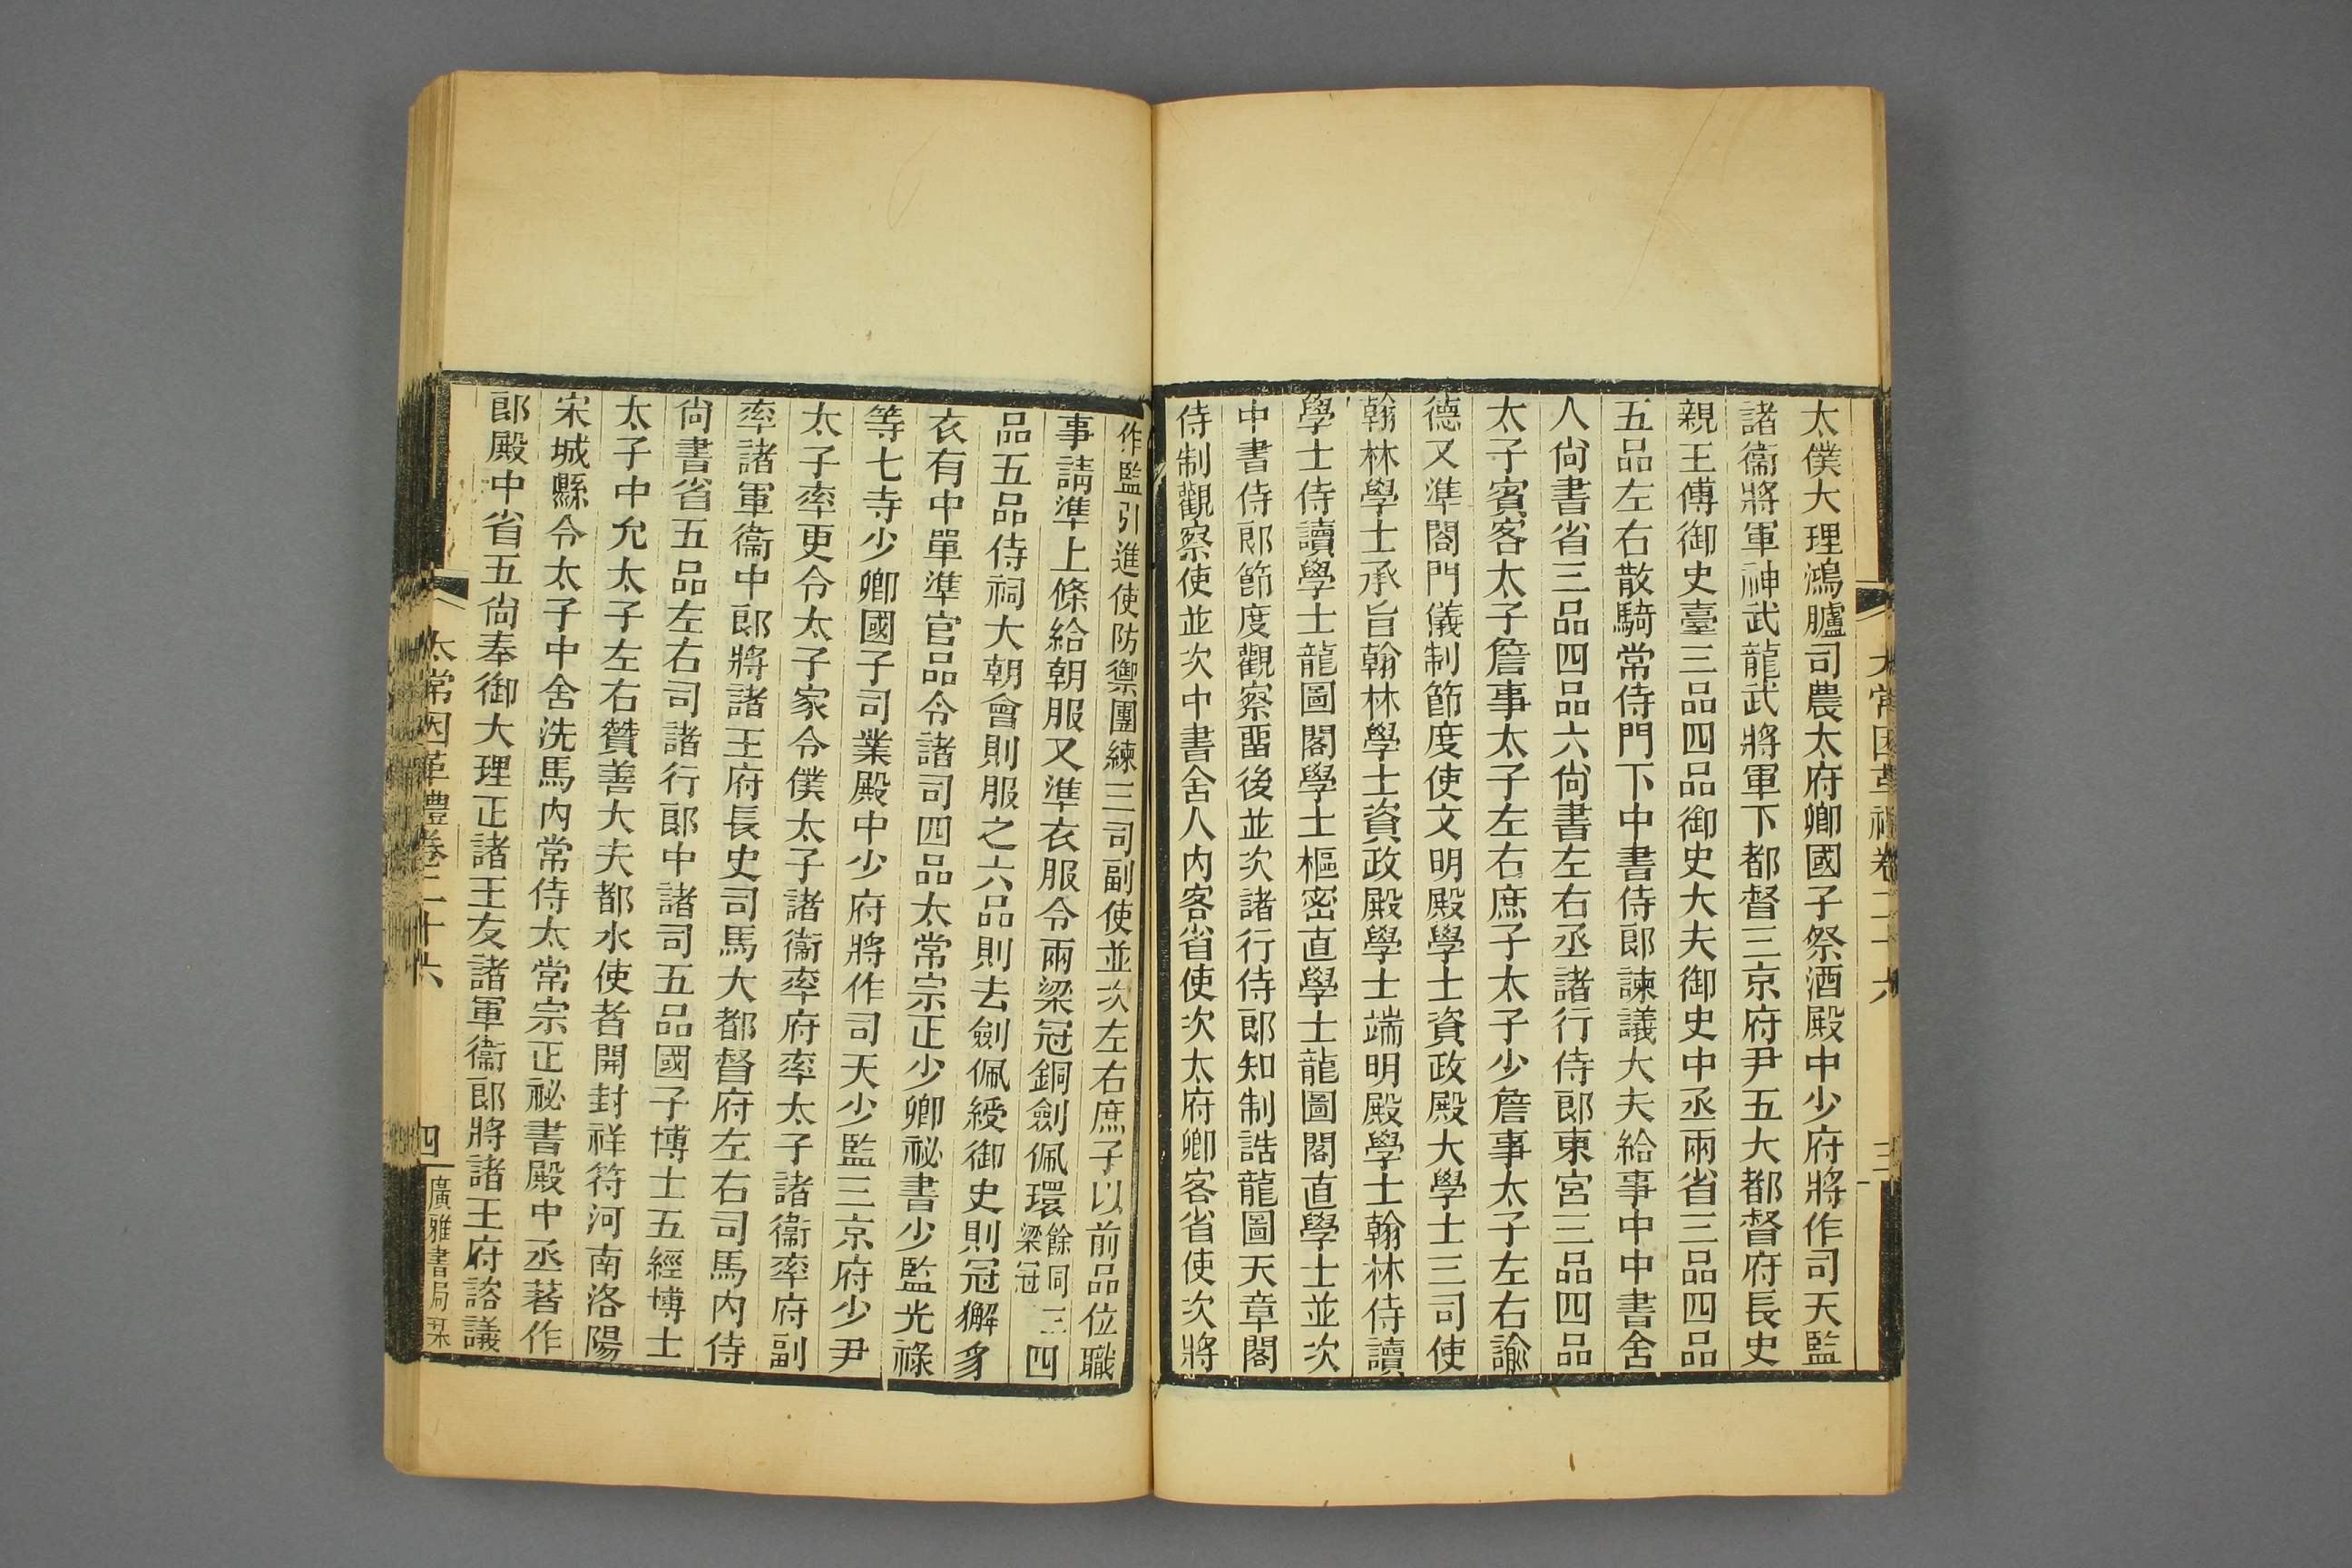 太常因革禮卷二十六
三
太僕大理鴻臚司農太府卿國子祭酒殿中少府將作司天監
諸衞將軍神武龍武將軍下都督三京府尹五大都督府長史
親王傅御史臺三品四品御史大夫御史中丞兩省三品四品
五品左右散騎常侍門下中書侍郎諫議大夫給事中中書舍
人尙書省三品四品六尙書左右丞諸行侍郎東宮三品四品
太子賓客太子詹事太子左右庶子太子少詹事太子左右諭
德又準閤門儀制節度使文明殿學士資政殿大學士三司使
翰林學士承旨翰林學士資政殿學士端明殿學士翰林侍讀
學士侍讀學士龍圖閣學士樞密直學士龍圖閣直學士並次
中書侍郎節度觀察畱後並次諸行侍郎知制誥龍圖天章閣
侍制觀察使並次中書舍人內客省使次太府卿客省使次將
作監引進使防禦團練三司副使並次左右庶子以前品位職
事請準上條給朝服又準衣服令兩梁冠銅劍佩環餘同三梁冠四
品五品侍祠大朝會則服之六品則去劍佩綬御史則冠獬豸
衣有中單準官品令諸司四品太常宗正少卿祕書少監光祿
等七寺少卿國子司業殿中少府將作司天少監三京府少尹
太子率更令太子家令僕太子諸衞率府率太子諸衞率府副
率諸軍衞中郎將諸王府長史司馬大都督府左右司馬內侍
尙書省五品左右司諸行郎中諸司五品國子博士五經博士
太子中允太子左右贊善大夫都水使者開封祥符河南洛陽
宋城縣令太子中舍洗馬內常侍太常宗正祕書殿中丞著作
郎殿中省五尙奉御大理正諸王友諸軍衞郎將諸王府諮議
太常因革禮卷二十六
四
廣雅書局栞